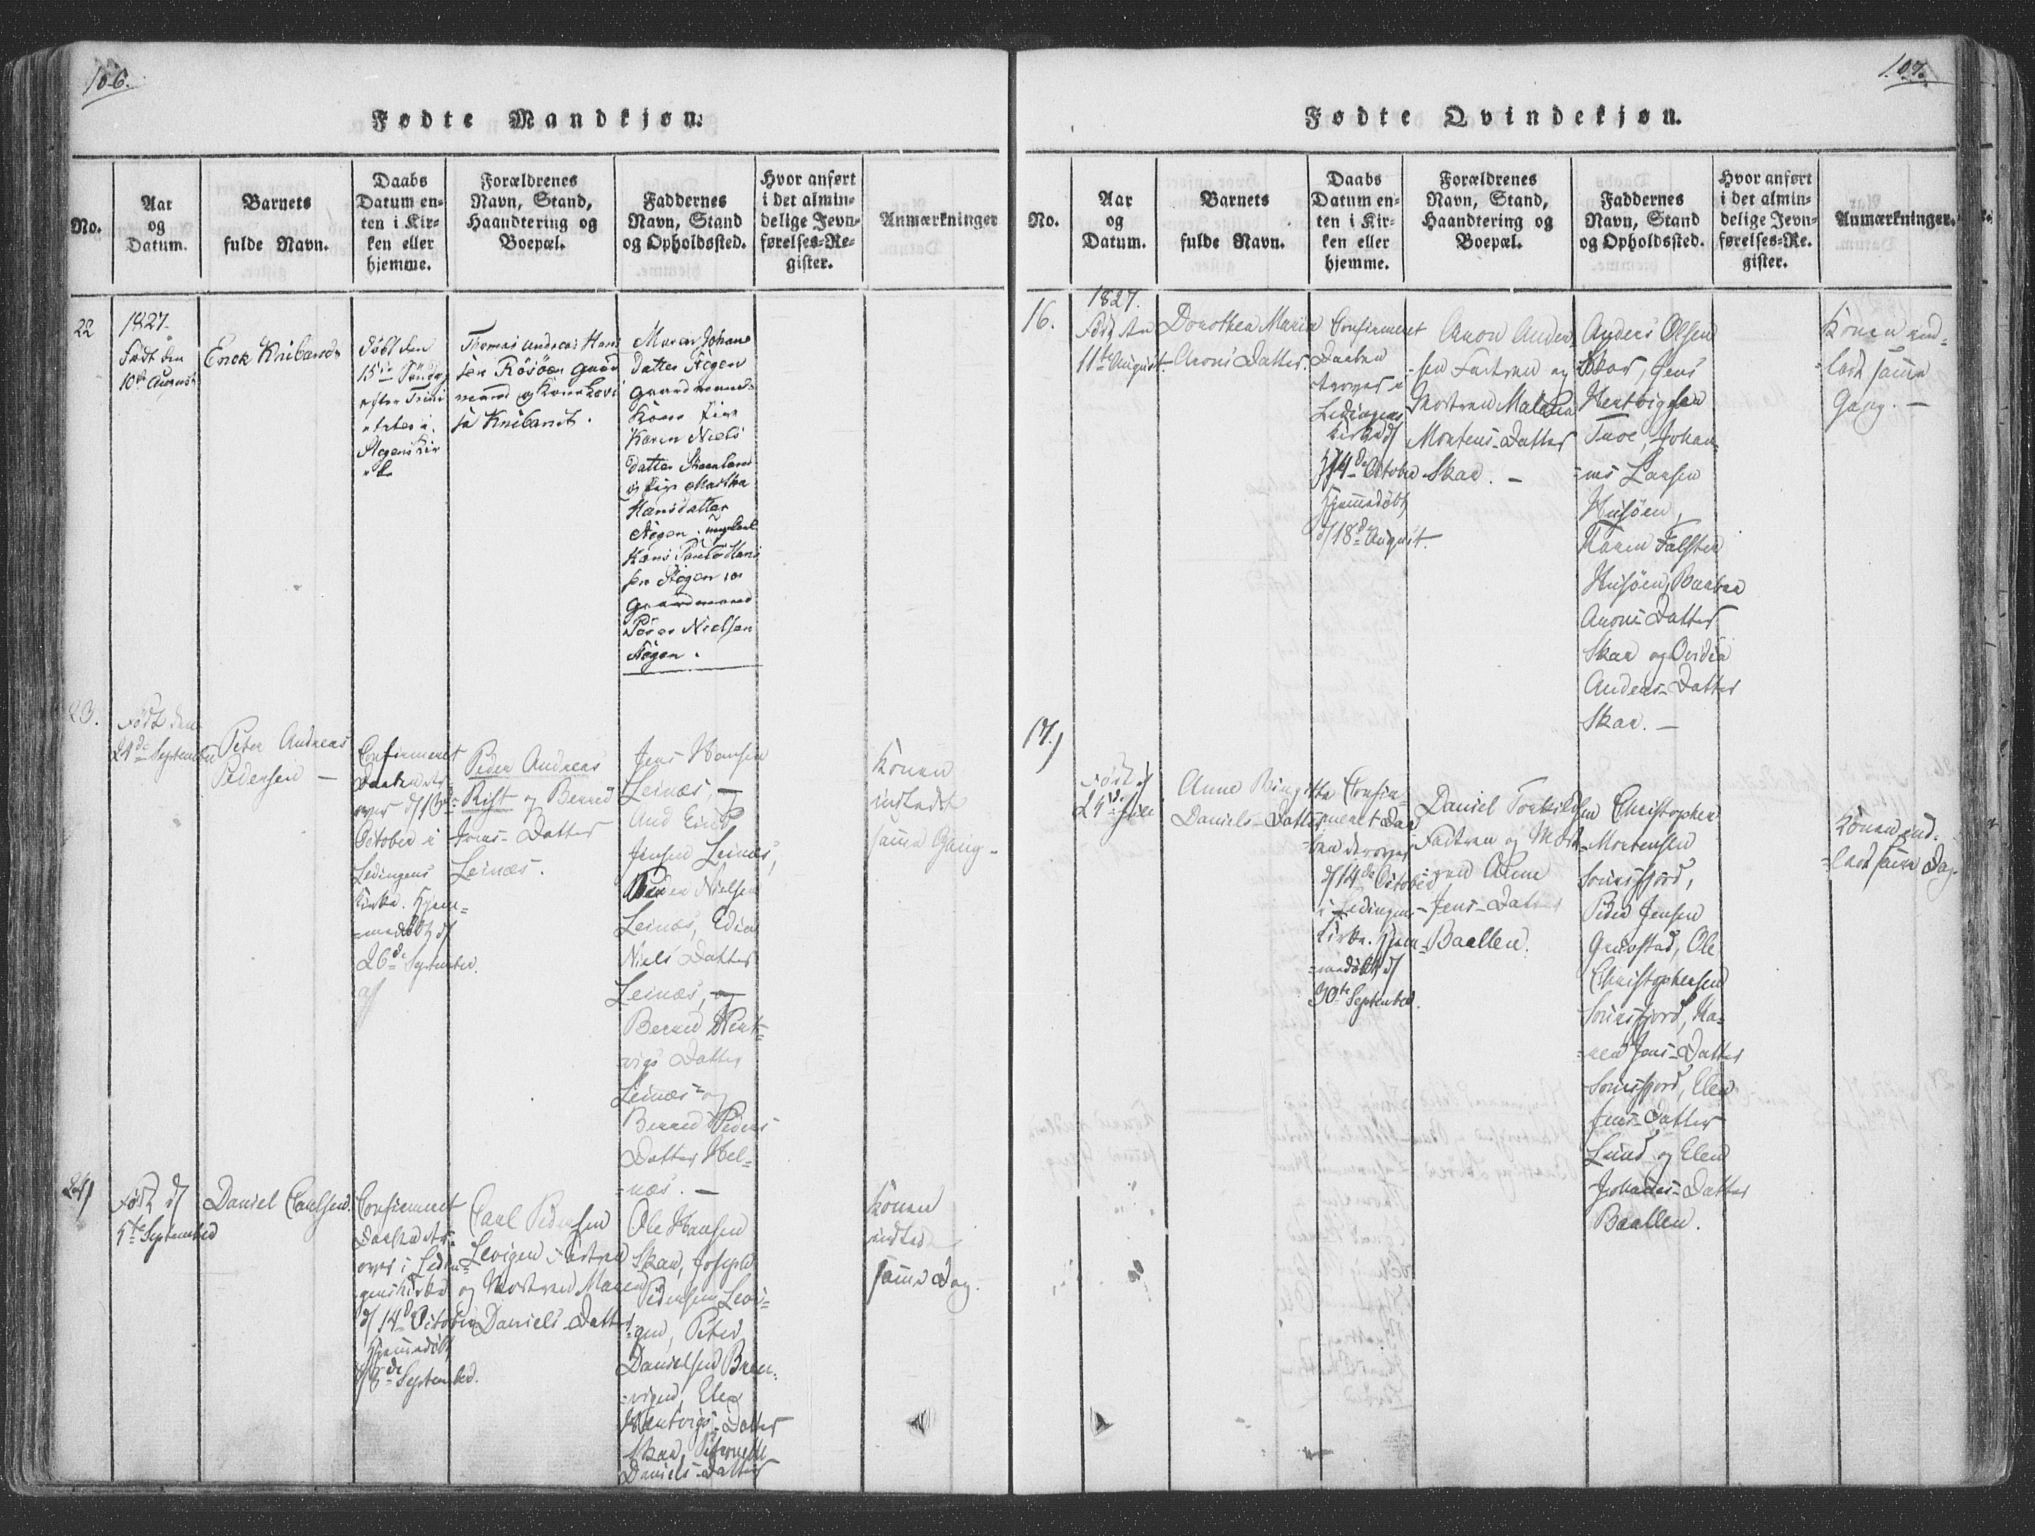 106.
Fødte Mandkjøn.
No.
Aar
og
Datum.
Barnets
fulde Navn.
Daabs
Datum en-
ten i Kir-
ken eller
hjemme.
Forældrenes
Navn, Stand,
Haandtering og
Boepæl.
Faddernes
Navn, Stand
og Opholdssted.
Hvor anført
i det almin-
delige Jevn-
førelses-Re-
gister.
Anmærkninger
22
1827.
Født den
10de August
Erick Knibandt
Døbt den
15de Søndag
efter Trini
tatis i
Stegens Kir
ke
Thomas Andreas Han
sen Røsøen Gaard
mand og Kone Lovi
sa Knibandt.
Maren Johans
datter Stegen
gaardmands
Kone Pige
Karen Niels
datter
og Pige Martha
Hansdatter
Stegen, ungkarl
Hans
sen Stegen og
Gaardmand
Nielsen
Stegen.
23.
Født den
24de September
Peter Andreas
Pedersen —
Confirmeret
Daaben
d/
October i
Ledingens
Kirke. Hjem-
medøbt d/
26de September.
Peder Andreas
Rist og Bereed
Jens-Datter
Leinæs.
Jens Hansen
Leinæs, —
And
Jensen Leinæs,
Peder Nielsen
Leinæs,
Niels Datter
Leinæs, og
Bereed Hent-
vigs Datter
Leinæs og
Bereed Peders
Datter Hel-
næs. —
Konen
indledet
samme Gang-
24/
Født d/
5te September
Daniel Carlsen.
Confirmeret
Daabens
i Ledin-
gens Kirke
d/ 14de October
Hjemmedøbt
d/ 8de September.
Carl Pedersen
Levigen Fastren
og Mostren Maren
Daniels-Datter
Ole Hansen
Skar, Joseph
Pedersen Levi-
gen, Peter
Danielsen
vigen, Elen
Hentvigs-Datter
Skar,
Daniels-Datter
Konen
indled
samme Dag.
107.
Fødte Qvindekjøn.
No.
Aar
og
Datum.
Barnets
fulde Navn.
Daabs
Datum en-
ten i Kir-
ken eller
hjemme.
Forældrenes
Navn, Stand,
Haandtering og
Boepæl.
Faddernes
Navn, Stand
og Opholdssted.
Hvor anført
i det almin-
delige Jevn-
førelses-Re-
gister.
Anmærkninger.
16.
1827.
Født den
11te August.
Dorothea Maria
Arons Datter.
Confirmeret
Daaben
i
Ledingens
Kirke d/
14de October
Hjemmedøbt
d/ 18de August.
Aron Ander-
sen Fastren og
Mostren Malena
Mortens-Datter
Skar. —
Anders Olsen
Skar, Jens
Hentvigsen
Johan-
nes Larsen
Husøen,
Karen Falster
Husøen,
Arons-Datter
Skar og Ovidia
Anders-Datter
Skar. —
Konen ind-
ledt samme
Gang. —
17./
Født d/
24de
Anne Birgitta
Daniels-Datter
Confir-
meret Daa-
ben
d/ 14de October
i Ledingens
Kirke. Hjem-
medøbt d/
30te September.
Daniel Torkildsen
Fastren og Most-
ren Anne
Jens-Datter
Baallen.
Christopher
Mortensen
Peder Jensen
Ole
Christophersen
Ka-
ren Jens-Datter
Elen
Jens-Datter
Lund og Elen
Johanes-Datter
Baallen.
Konen ind-
ledt samme Dag.